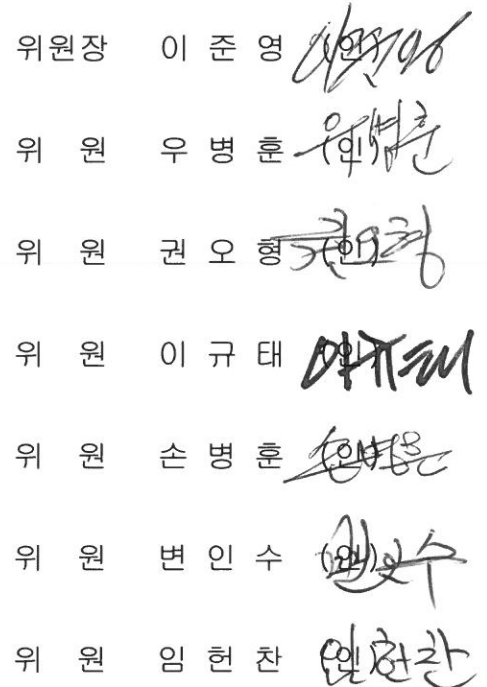 위원장 이 준 영 (인)
위 원 우 병 훈 (인)
위 원 권 오 형 (인)
위 원 이 규 태 (인)
위 원 손 병 훈 (인)
위 원 변 인 수 (인)
위 원 임 헌 찬 (인)